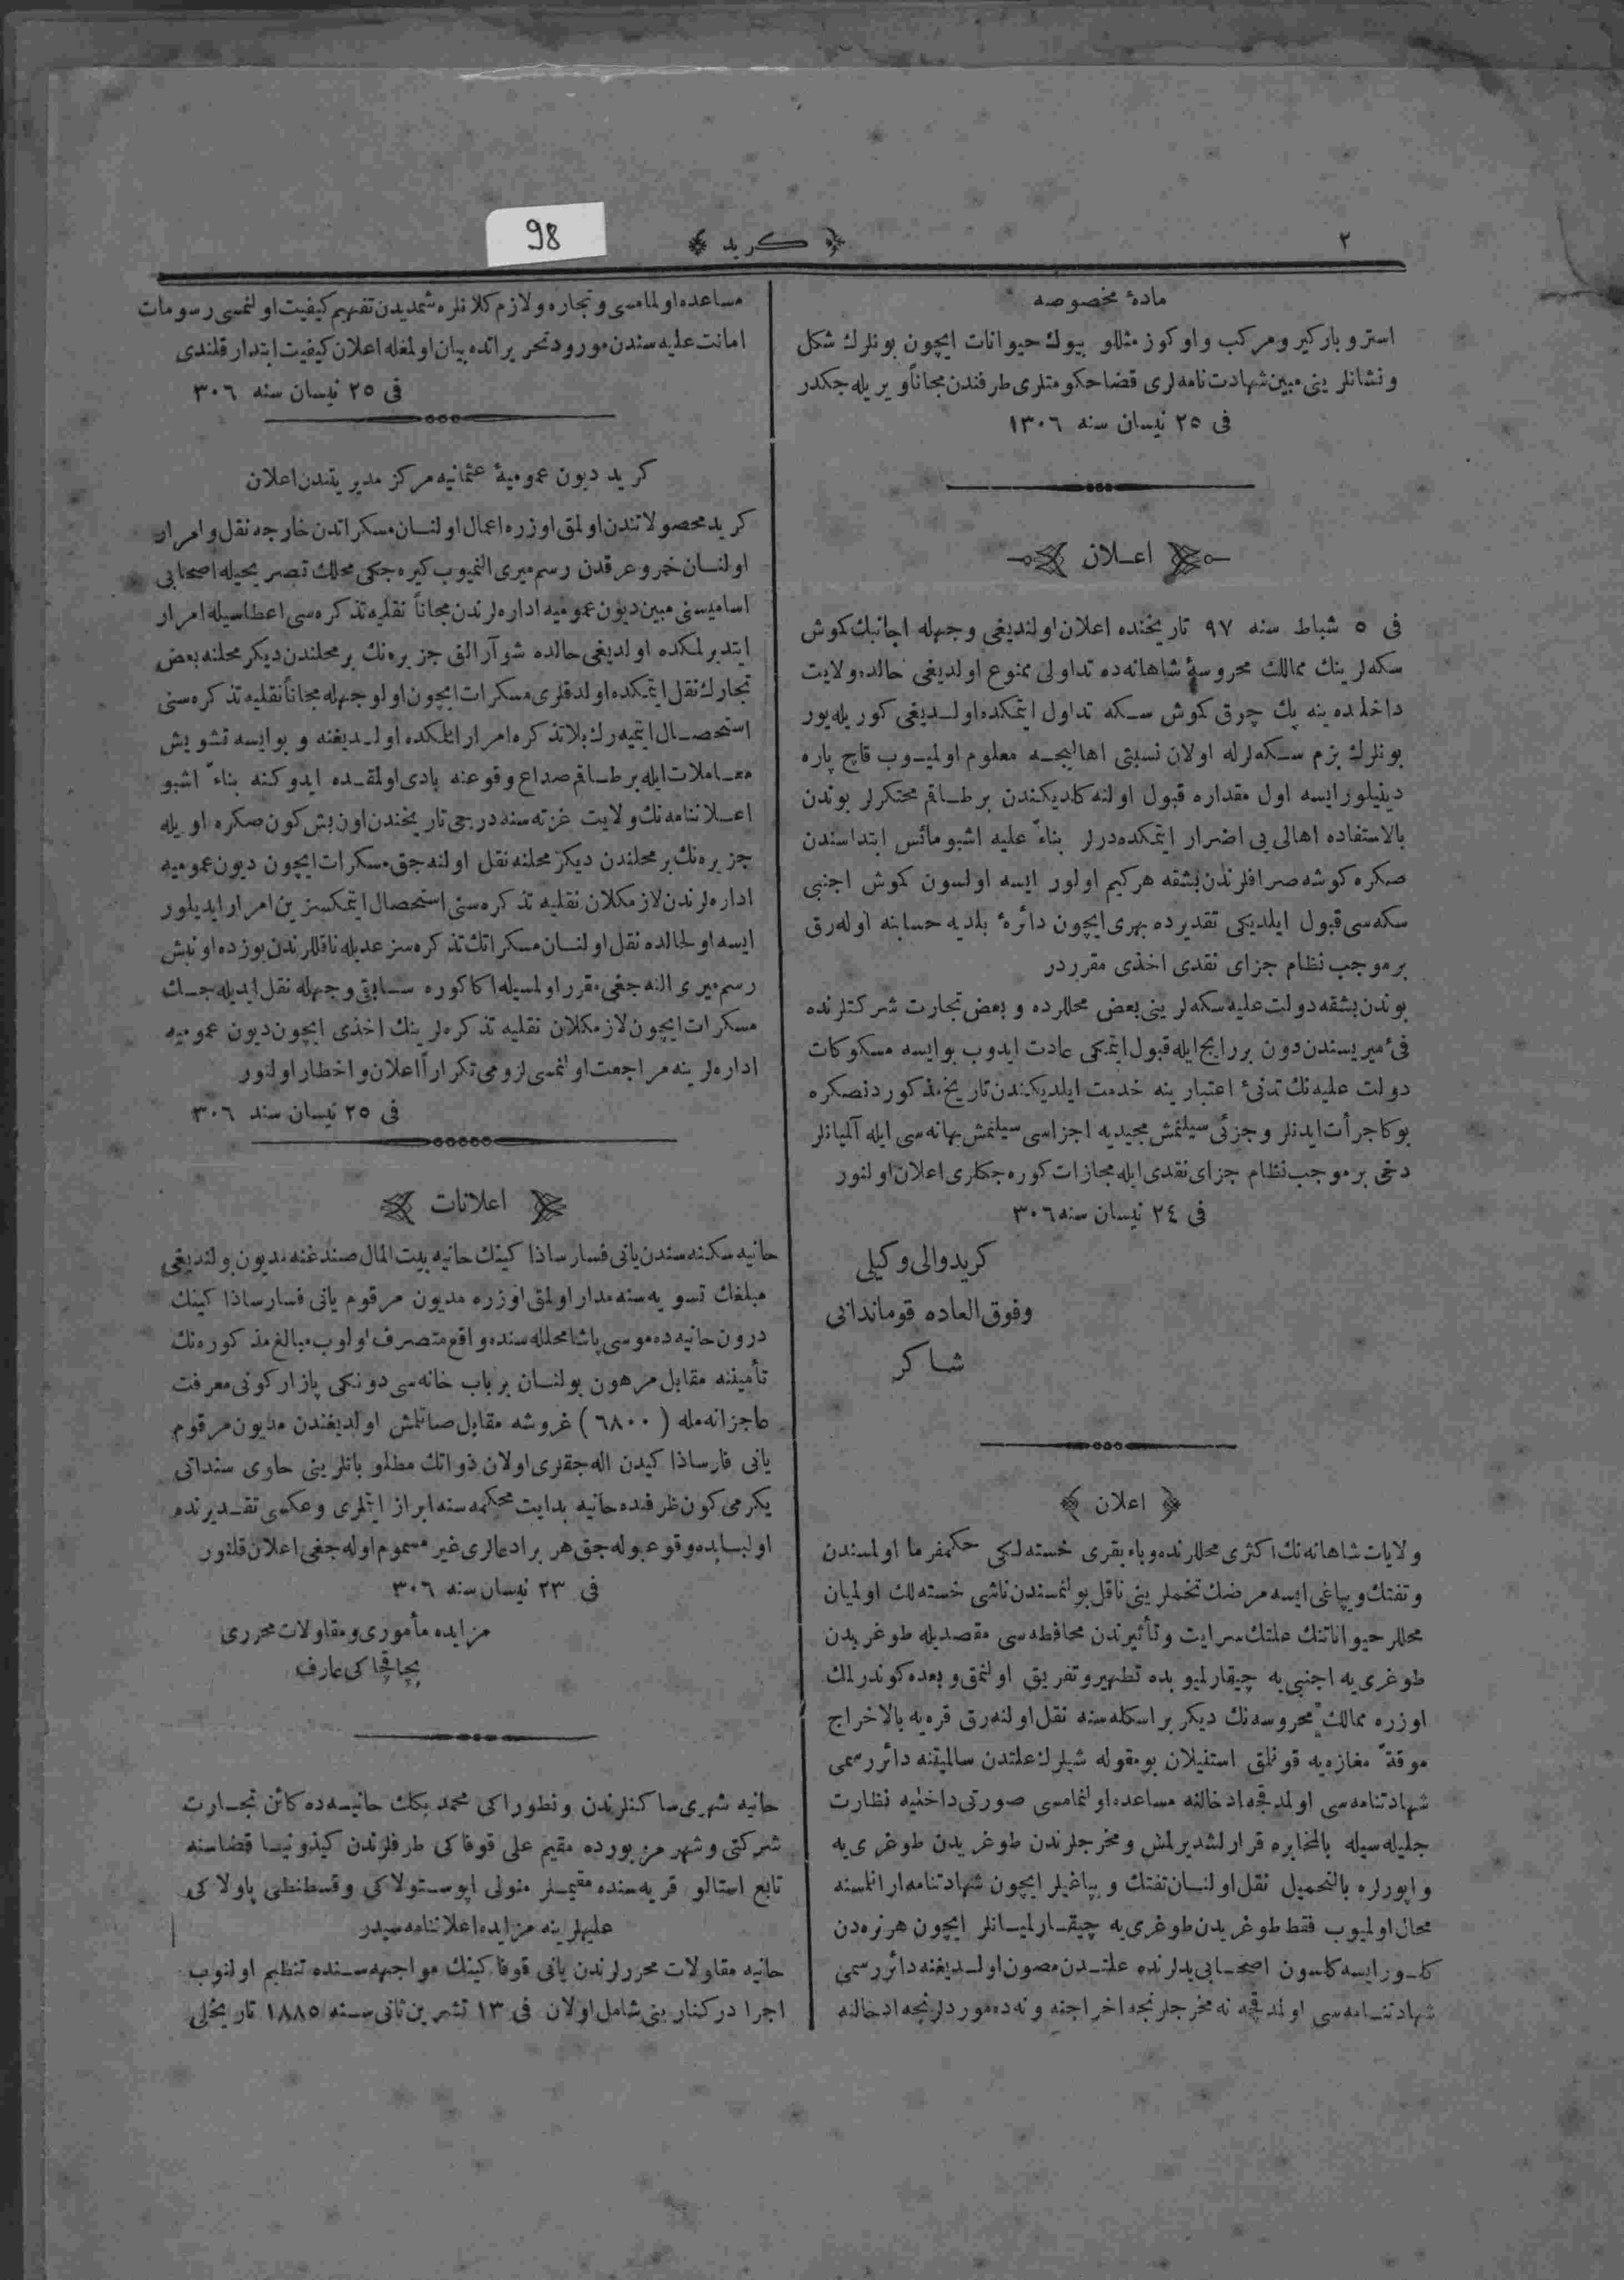 ٢
كريد
98
مادۀ مخصوصه
استر و باركير و مركب و اوكوز مثللو بيوك حيوانات ايچون بونلرك شكل
و نشانلرينى مبين شهادتنامه لرى قضا حكومتلرى طرفندن مجاناً ويريله جكدر
فى ٢٥ نيسان سنه ١٣٠٦
اعــلان
فى ٥ شباط سنه ٩٧ تاريخنده اعلان اولنديغى وجهله اجانبك كموش
سكه لرينك ممالك محروسۀ شاهانه ده تداولى ممنوع اولديغى حالده ولايت
داخلنده ينه پك چوق كموش سـكه تداول ايتمكده اولـديغى كوريله يور
بونلرك بزم سـكه لرله اولان نسبتى اهاليجـه معلوم اولميـوب قاچ پاره
دينيلور ايسه اول مقداره قبول اولنه كلديكندن بر طـاقم محتكرلر بوندن
بالاستفاده اهالى يى اضرار ايتمكده درلر بناءً عليه اشبو مائس ابتداسندن
صكره كوشه صرافلرندن بشقه هركيم اولور ايسه اولسون كموش اجنبى
سكه سى قبول ايلديكى تقديرده بهرى ايچون دائرۀ بلديه حسابنه اوله رق
بر موجب نظام جزاى نقدى اخذى مقرردر
بوندن بشقه دولت عليه سكه لرينى بعض محللرده و بعض تجارت شركتلرنده
فئ ميريسندن دون بر رايج ايله قبول ايتمكى عادت ايدوب بو ايسه مسكوكات
دولت عليه نك تدنئ اعتبارينه خدمت ايلديكندن تاريخ مذكوردنصكره
بوكا جرأت ايدنلر و جزئى سيلنمش مجيديه اجزاسى سيلنمش بهانه سى ايله آلميانلر
دخى بر موجب نظام جزاى نقدى ايله مجازات كوره جكلرى اعلان اولنور
فى ٢٤ نيسان سنه ٣٠٦
كريد والى وكيلى
وفوق العاده قوماندانى
شـاكر
اعلان
ولايات شاهانه نك اكثرى محللرنده وباء بقرى خسته لكى حكمفرما اولمسندن
و تفتك و يپاغى ايسه مرضك تخملرينى ناقل بولنمسندن ناشى خسته لك اولميان
محللر حيواناتنك علتك سرايت و تأثيرندن محافظه سى مقصديله طوغريدن
طوغرى يه اجنبى يه چيقارلميوبده تطهير و تفريق اولنمق و بعده كوندرلمك
اوزره ممالك محروسه نك ديكر بر اسكله سنه نقل اولنه رق قره يه بالاخراج
موقةً مغازه يه قونلمق استنيلان بو مقوله شيلرك علتدن سالميتنه دائر رسمى
شهادتنامه سى اولمدقجه ادخالنه مساعده اولنمامسى صورتى داخليه نظارت
جليله سيله بالمخابره قرارلشديرلمش و مخرجلرندن طوغريدن طوغرى يه
واپورلره بالتحميل نقل اولنـان تفتك و يپاغيلر ايچون شهادتنامه ارانلمسنه
محال اولميوب فقط طوغريدن طوغرى يه چيقـارلميـانلر ايچون هر نره دن
كلـور ايسه كلسون اصحـابى يدلرنده علتـدن مصون اولـديغنه دائر رسمى
شهادتنـامه سى اولمدقجه نه مخرجلرنجه اخراجنه و نه ده موردلرنجه ادخالنه
مساعده اولنمامسى و تجاره و لازم كلانلره شمديدن تفهيم كيفيت اولنمسى رسومات
امانت عليه سندن مورود تحريراتده بيان اولمغله اعلان كيفيت ابتدار قلندى
فى ٢٥ نيسان سنه ٣٠٦
كريد ديون عموميۀ عثمانيه مركز مديريتندن اعلان
كريد محصولاتندن اولمق اوزره اعمال اولنـان مسكراتدن خارجه نقل و امرار
اولنـان خمر و عرقدن رسم ميرى النميوب كيره جكى محلك تصريحيله اصحابى
اساميسنى مبين ديون عموميه اداره لرندن مجاناً نقليه تذكره سى اعطاسيله امرار
ايتديرلمكده اولديغى حالده شو آرالق جزيره نك بر محلندن ديكر محلنه بعض
تجارك نقل ايتمكده اولدقلرى مسكرات ايچون اولوجهله مجاناً نقليه تذكره سنى
استحصـال ايتميه رك بلا تذكره امرار ايلمكده اولـديغنه و بو ايسه تشويش
معـاملات ايله بر طـاقم صداع وقوعنه بادى اولمقـده ايدوكنه بناءً اشبو
اعـلاننامه نك ولايت غزته سنه درجى تاريخندن اون بش كون صكره اويله
جزيره نك بر محلندن ديكر محلنه نقل اولنه جق مسكرات ايچون ديون عموميه
اداره لرندن لازمكلان نقليه تذكره سنى استحصال ايتمكسزين امرار ايديلور
ايسه اولحالده نقل اولنـان مسكراتك تذكره سز عديله ناقللرندن يوزده اون بش
رسم ميرى النه جغى مقرر اولمسيله اكا كوره سـابق وجهله نقل ايديله جـك
مسكرات ايچون لازمكلان نقليه تذكره لرينك اخذى ايچون ديون عموميه
اداره لرينه مراجعت اولنمسى لزومى تكراراً اعلان و اخطار اولنور
فى ٢٥ نيسان سنه ٣٠٦
اعلانات
حانيه سكنه سندن يانى فسارساذا كينك حانيه بيت المال صندغنه مديون بولنديغى
مبلغك تسويه سنه مدار اولمق اوزره مديون مرقوم يانى فسارساذا كينك
درون حانيه ده موسى پاشا محلله سنده واقع متصرف اولوب مبالغ مذكوره نك
تأمينه مقابل مرهون بولنـان بر باب خانه سى دونكى پازار كونى معرفت
عاجزانه مله (٦٨٠٠) غروشه مقابل صاتلمش اولديغندن مديون مرقوم
يانى فارساذا كيدن اله جقلرى اولان ذواتك مطلوباتلرينى حاوى سنداتى
يكرمى كون ظرفنده حانيه بدايت محكمه سنه ابراز ايتملرى و عكسى تقـديرنده
اولبـابده وقوعبوله جق هر بر ادعالرى غير مسموع اوله جغى اعلان قلنور
فى ٢٣ نيسان سنه ٣٠٦
مزايده مأمورى و مقاولات محررى
بچاقچاكى عارف
حانيه شهرى ساكنلرندن ونطوراكى محمد بكك حانيـه ده كائن تجـارت
شركتى و شهر مزبورده مقيم على قوفاكى طرفلرندن كيذونيـا قضاسنه
تابع استالو قريه سنده مقيمـلر منولى اپوسـتولاكى و قسطنطى پاولاكى
عليهلرينه مزايده اعلاننامه سيدر
حانيه مقاولات محررلرندن يانى قوفاكينك مواجهه سـنده تنظيم اولنوب
اجرا در كنارينى شامل اولان فى ١٣ تشرين ثانى سـنه ١٨٨٥ تاريخلى